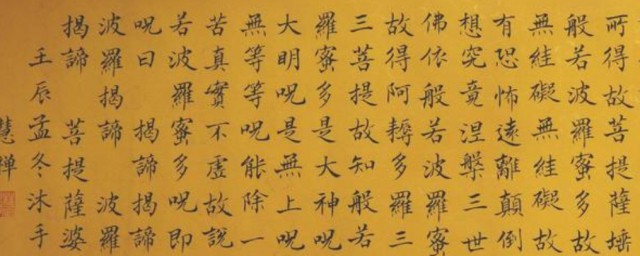 所得故菩提薩埵
般若波羅蜜多故
無絓礙無絓礙故
有恐怖遠離顛倒
想究竟涅槃三世
佛依般若波羅蜜
故得阿耨多羅三
三菩提故知般若
羅蜜多是大神呪
大明呪是無上呪
無等等呪能除一
苦真實不虛故說
若波羅蜜多呪即
呪曰 揭諦揭諦
波羅揭諦 波羅
揭諦 菩提薩婆
壬辰孟冬沐手
慧禅